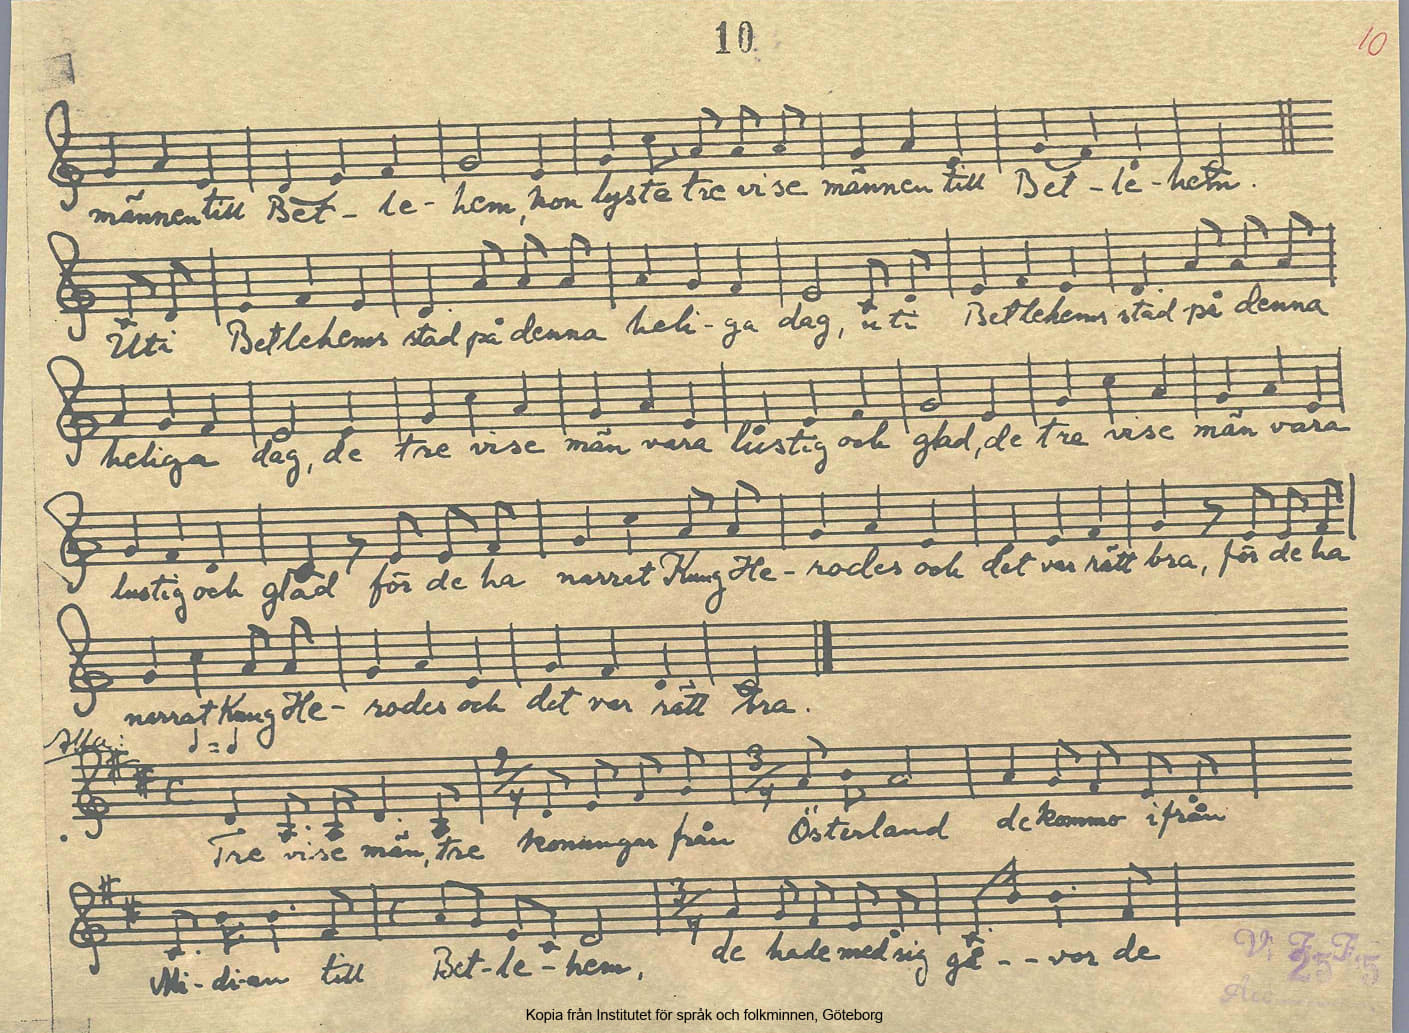 10
10
männen till Bet - le - hem, hon lyste tre vise männen till Bet - le - hem.
Uti Betlehems stad på denna heli - ga dag, uti Betlehems stad på denna
heliga dag, de tre vise män vara lustig och glad, de tre vise män vara
lustig och glad för de ha narrat Kung He - rodes och det var rätt bra, för de ha
narrat Kung He - rodes och det var rätt bra.
C 2/4 3/4
Tre vise män, tre konungar från Österland de kommo ifrån
C 3/4
Mi - di - an till Bet - le - hem, de hade med sig gå - - vor de
V. F. F.
Kopia från Institutet för språk och folkminnen, Göteborg